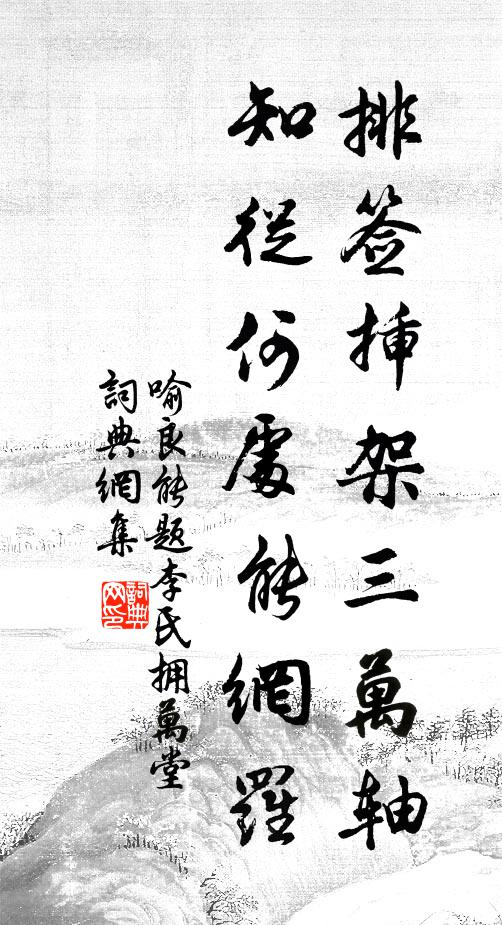 排签挿架三萬軸
知從何處能網羅
喻良能題李氏拥萬堂
詞典網集
詞典
网印